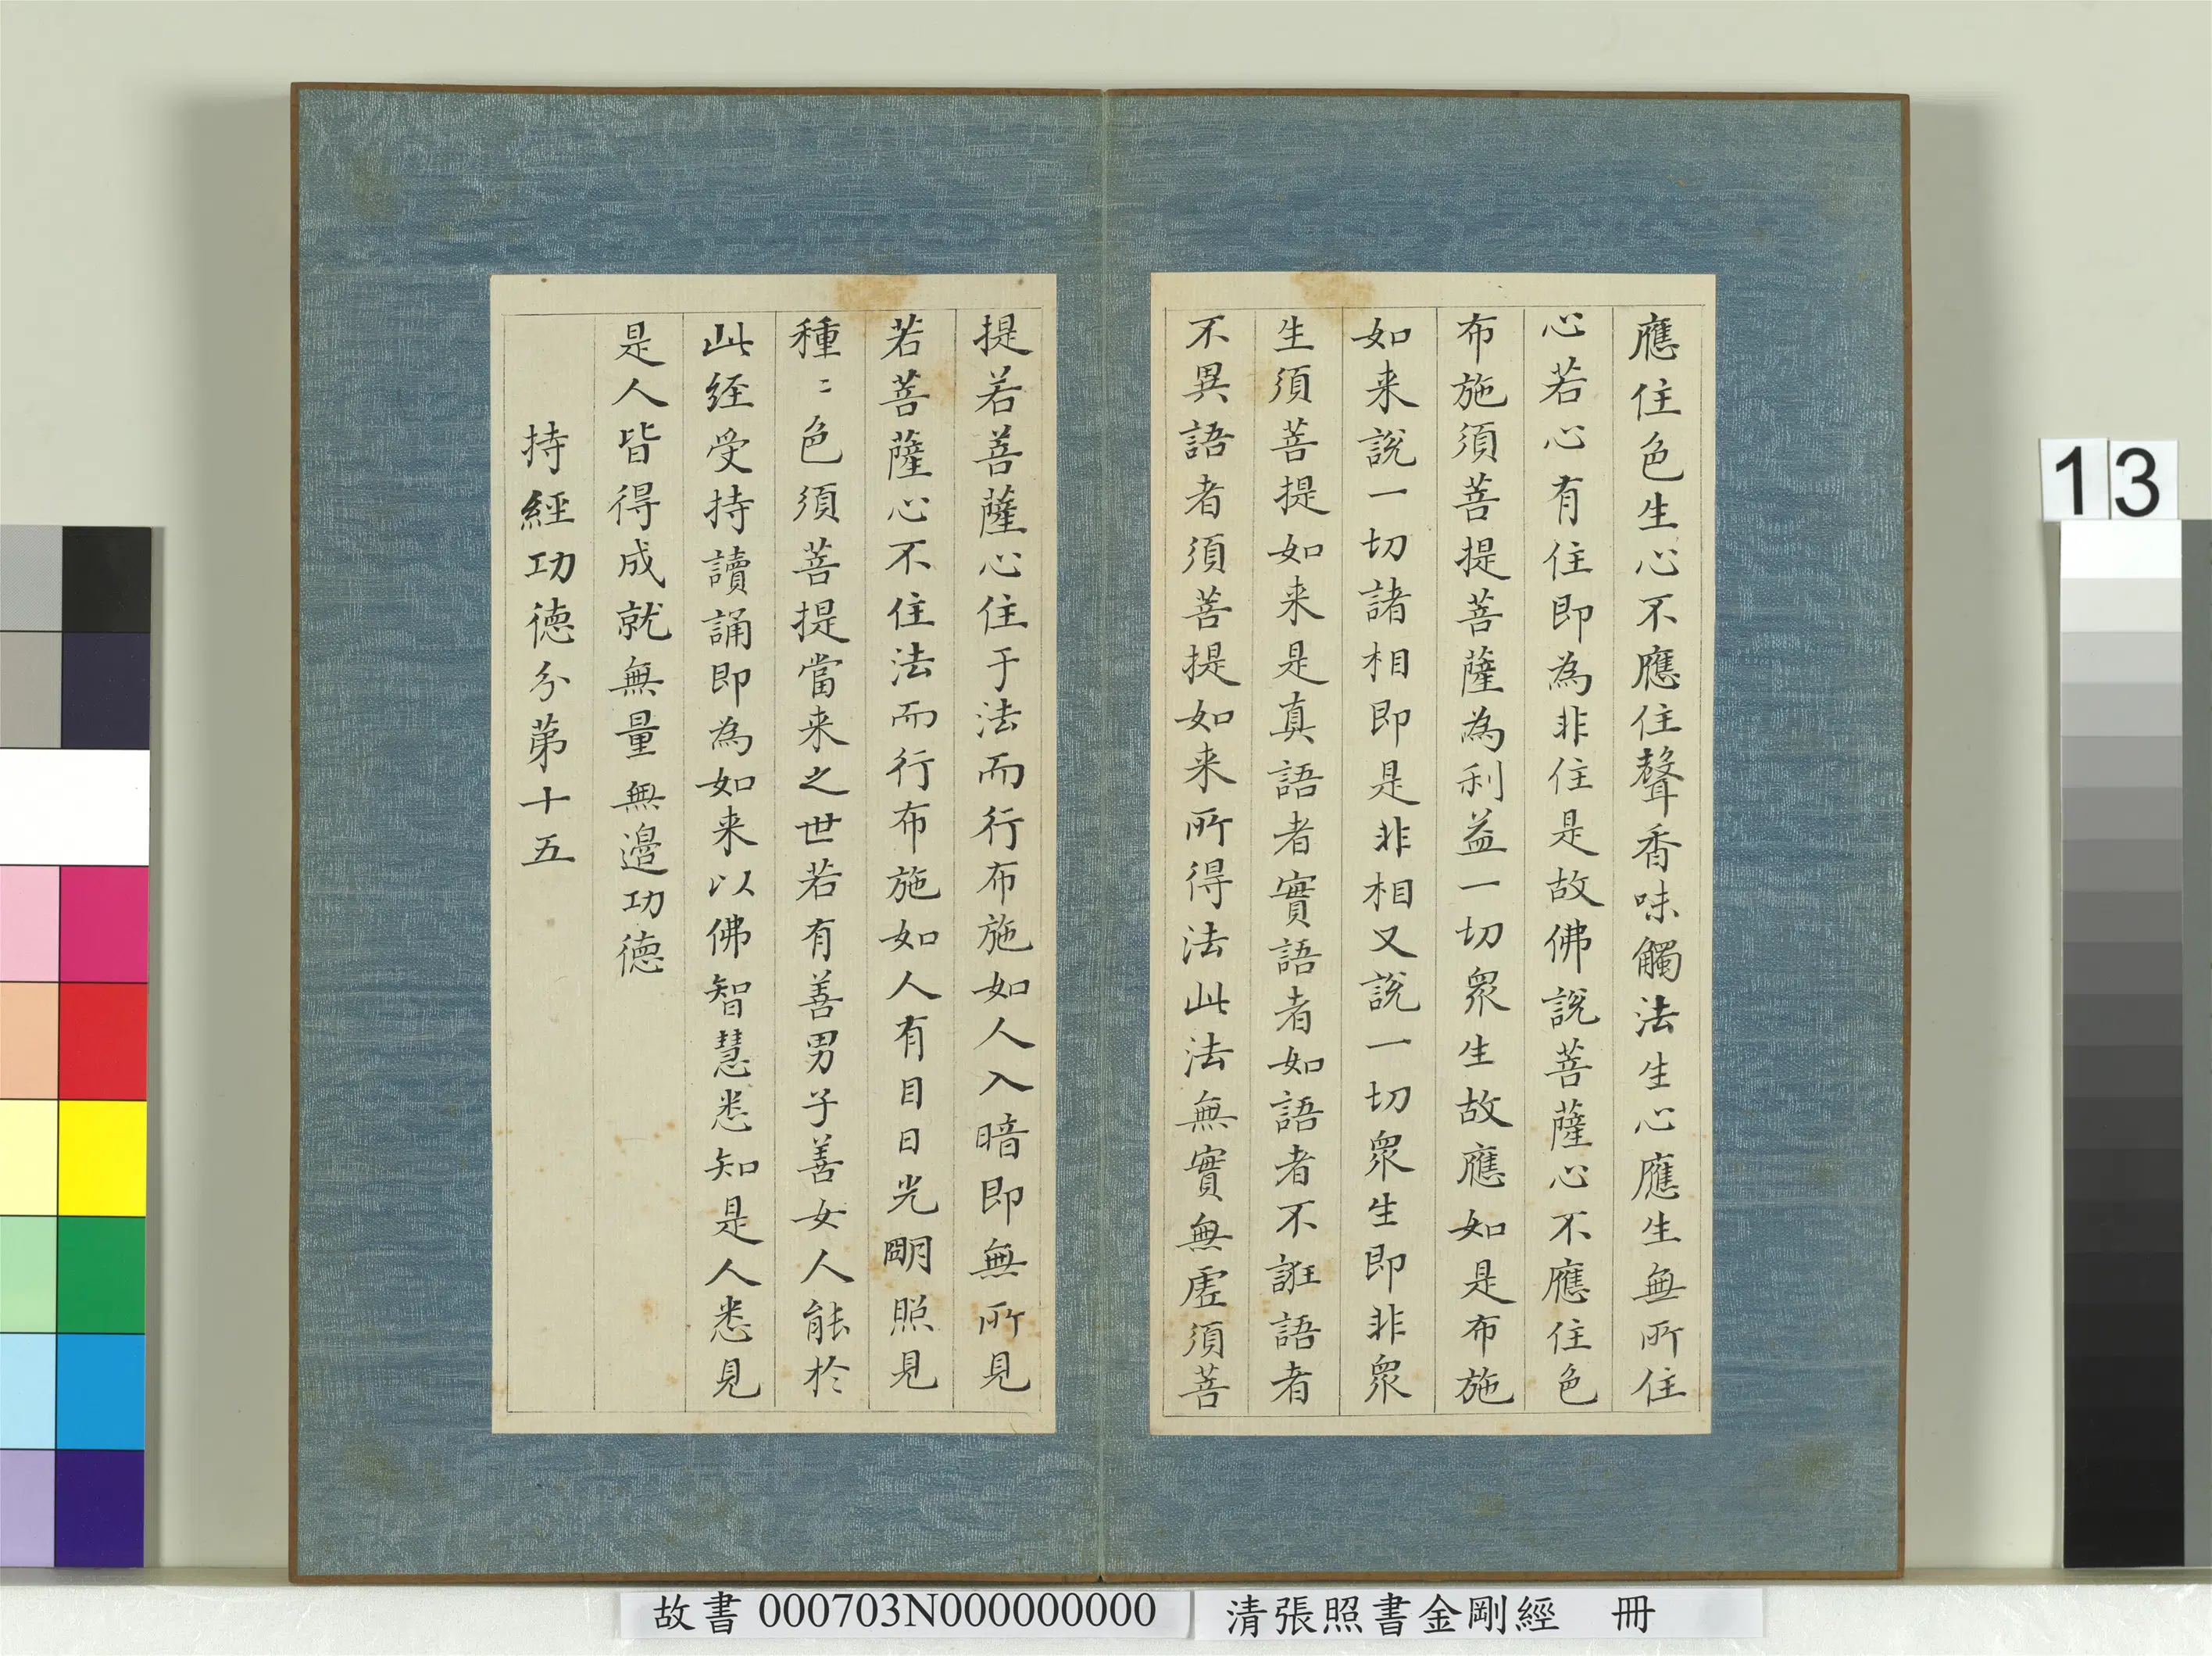 應住色生心不應住聲香味觸法生心應生無所住
心若心有住即為非住是故佛說菩薩心不應住色
布施須菩提菩薩為利益一切眾生故應如是布施
如来說一切諸相即是非相又說一切眾生即非眾
生須菩提如来是真語者實語者如語者不誑語者
不異語者須菩提如来所得法此法無實無虛須菩
提若菩薩心住于法而行布施如人入暗即無所見
若菩薩心不住法而行布施如人有目日光朙照見
種〻色須菩提當来之世若有善男子善女人能於
此經受持讀誦即為如来以佛智慧悉知是人悉見
是人皆得成就無量無邊功德
持經功德分第十五
13
故書 000703N000000000
清張照書金剛經 冊